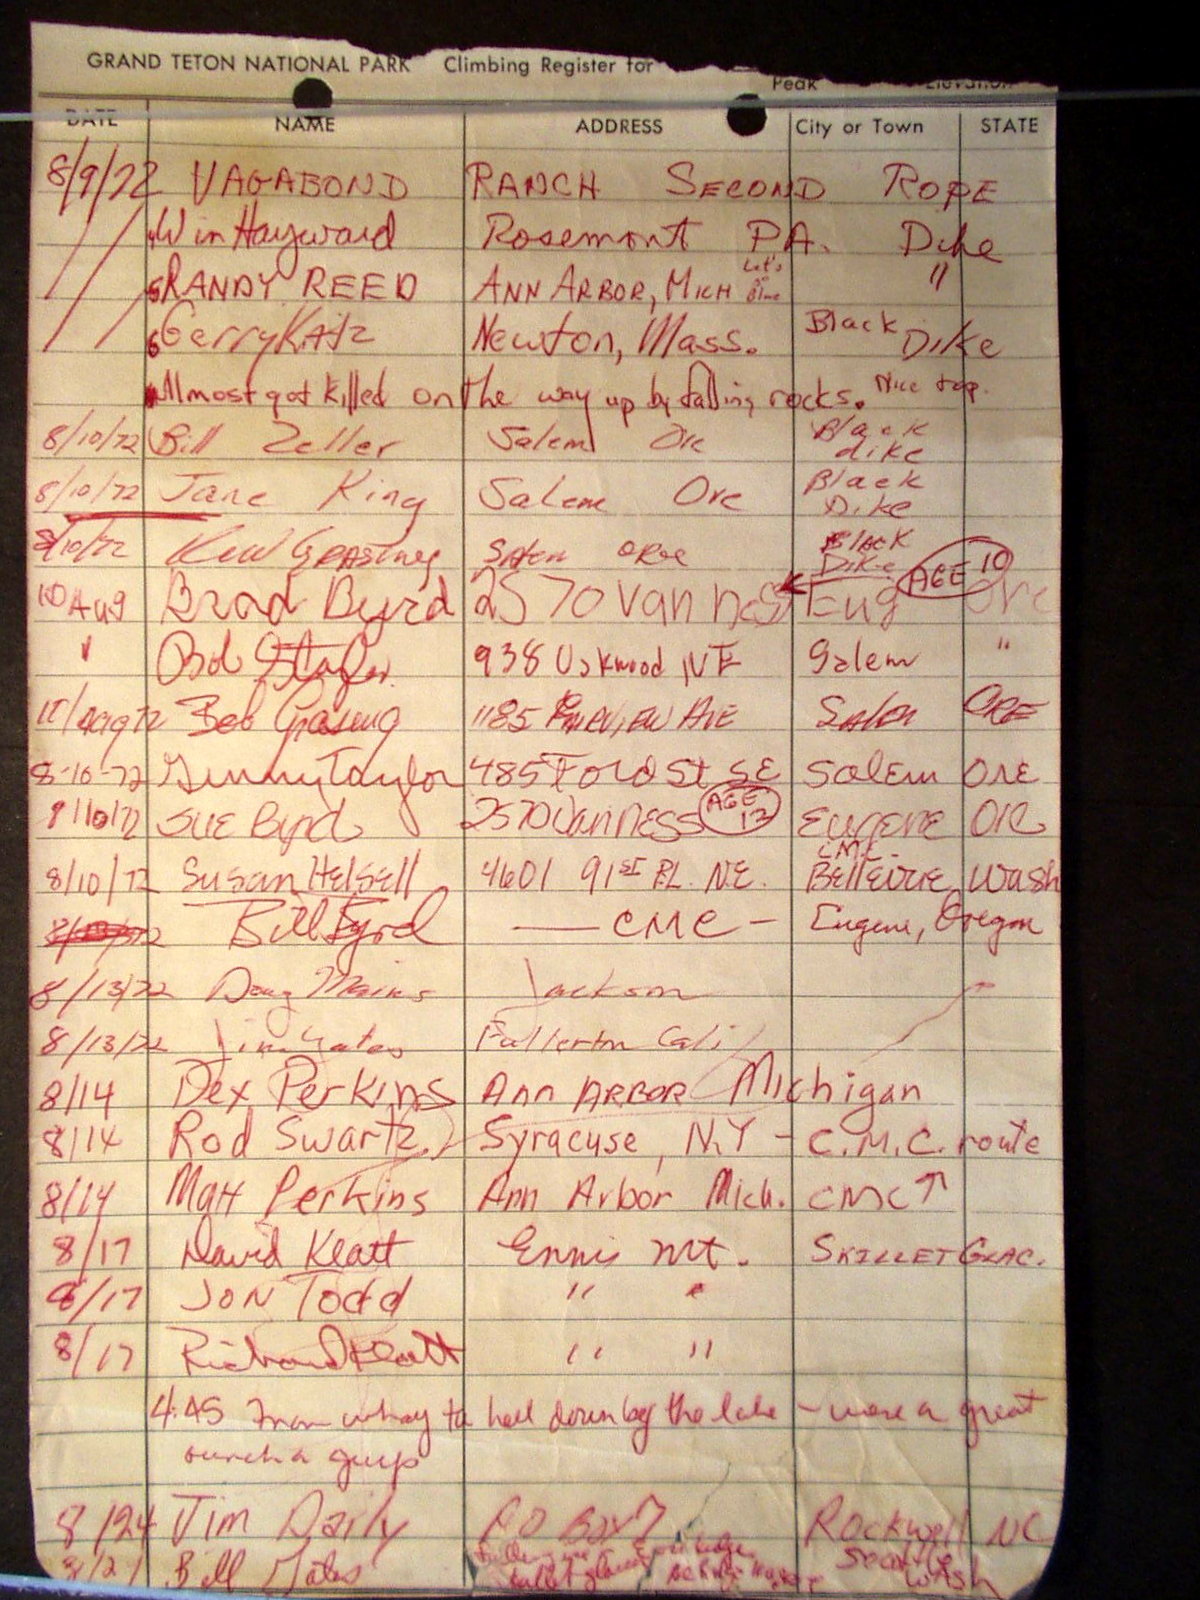 GRAND TETON NATIONAL PARK Climbing Register for
Peak Elevation
DATE NAME ADDRESS City or Town STATE
8/9/72 VAGABOND RANCH SECOND ROPE
Win Hayward Rosemont PA. Dike
RANDY REED ANN ARBOR, MICH "
Gerry Katz Newton, Mass. Black Dike
Almost got killed on the way up by falling rocks. Nice top.
8/10/72 Bill Zeller Salem Ore Black dike
8/10/72 Jane King Salem Ore Black Dike
8/10/72 Salem ORE BLACK DIKE
10 Aug Brad Byrd 2570 Van Ness Eug AGE 10 Ore
" Bob 938 NE Salem "
Bob 1185 AVE Salem ORE
8-10-72 Ginny Taylor 485 Ford St SE Salem ORE
8/10/72 Sue Byrd 2570 Van Ness AGE 13 Eugene ORE
8/10/72 Susan Helsell 4601 91ST PL. N.E. CMC Bellevue Wash
Bill Byrd — CMC – Eugene, Oregon
8/13/72 Doug Jackson
8/13/72 Jim Fullerton Cali
8/14 Dex Perkins Ann ARBOR Michigan
8/14 Rod Swartz Syracuse, N.Y – C.M.C. route
8/14 Matt Perkins Ann Arbor Mich. CMC ↑
8/17 David Klatt Ennis Mt. SKILLET GLAC.
8/17 JON Todd " "
8/17 Richard Klatt " "
4:45 to hell down by the lake – were a great
buncha guys
8/24 Jim Daily PO Box 7 Rockwell NC
Bill Seattle Wash